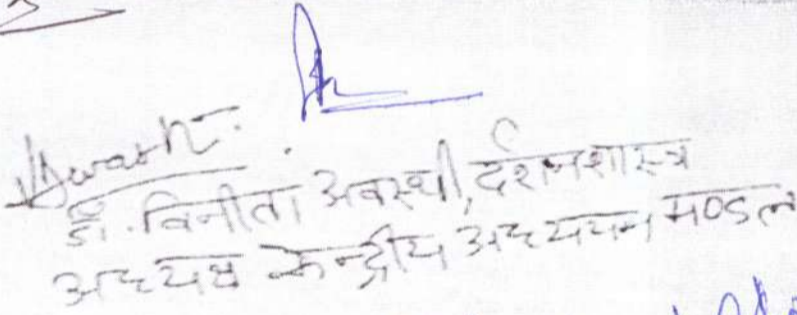 डॉ. विनीता अवस्थी, दर्शनशास्त्र
अध्यक्ष केन्द्रीय अध्ययन मण्डल